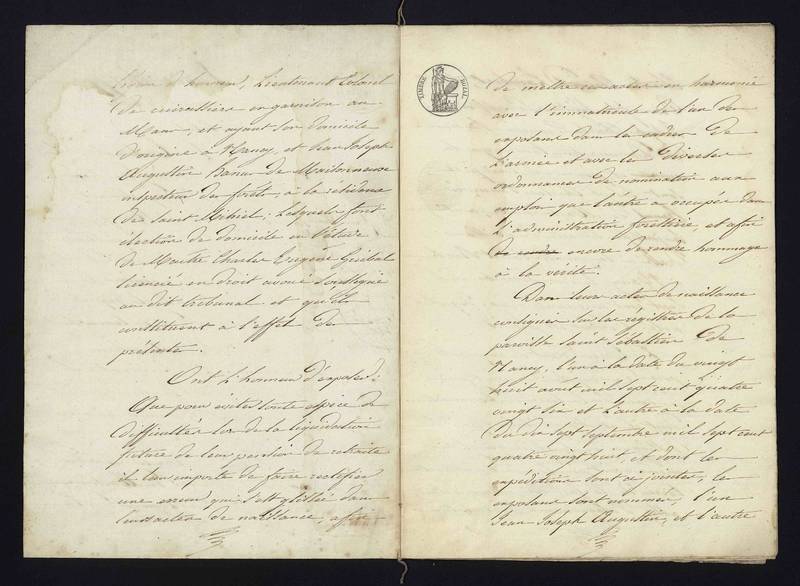 d'honneur, Lieutenant Colonel
de cuirassiers en garnison au
Mans, et ayant son domicile
d'origine à Nancy, et Jean Joseph
Augustin de Maisonneuve
inspecteur des forêts, à la résidence
de Saint Mihiel, Lesquels font
élection de domicile en l'étude
de Maître Charles Eugène
licencié en droit avoué
au dit tribunal et qu'ils
constituent à l'effet des
présentes.
Ont l'honneur d'exposer:
Que pour éviter toute espèce de
difficultés lors de la liquidation
future de leur pension de retraite
il leur importe de faire rectifier
une erreur qui s'est glissée dans
leurs actes de naissance, afin
TIMBRE ROYAL
de mettre ces actes en harmonie
avec l'immatricule de l'un des
exposans dans les cadres de
l'armée et avec les diverses
ordonnances de nomination aux
emplois que l'autre a occupés dans
l'administration forestière, et afin
de rendre encore de rendre hommage
à la vérité.
Dans leurs actes de naissance
consignés sur les régistres de la
paroisse Saint Sébastien de
Nancy, l'un à la date du vingt
huit août mil sept cent quatre
vingt six et l'autre à la date
du dix sept septembre mil sept cent
quatre vingt huit, et dont les
expéditions sont ci jointes, les
exposans sont nommés, l'un
Jean Joseph Augustin, et l'autre